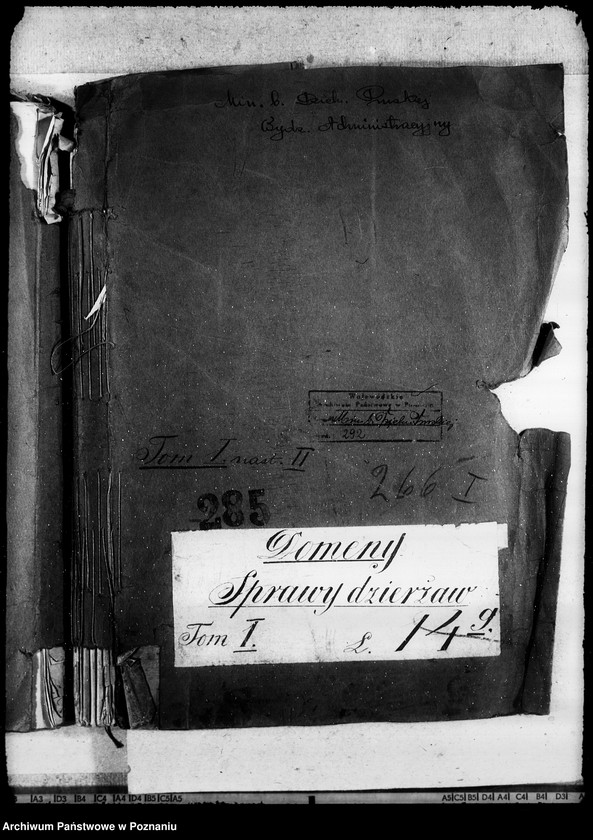 Min. b. Dzieln. Pruskiej
Wydz. Administracyjny
Wojewódzkie
Archiwum Państwowe w Poznaniu
Min. b. Dzieln. Pruskiej
292
Tom I. nast. II
266 I
285
Domeny
Sprawy dzierżaw
Tom I. L. 14 g.
A3 D3 B4 C4 A4 D4 B5 C5 A5
A5 C5 B5 D4 A4 C4 B4 D3
Archiwum Państwowe w Poznaniu